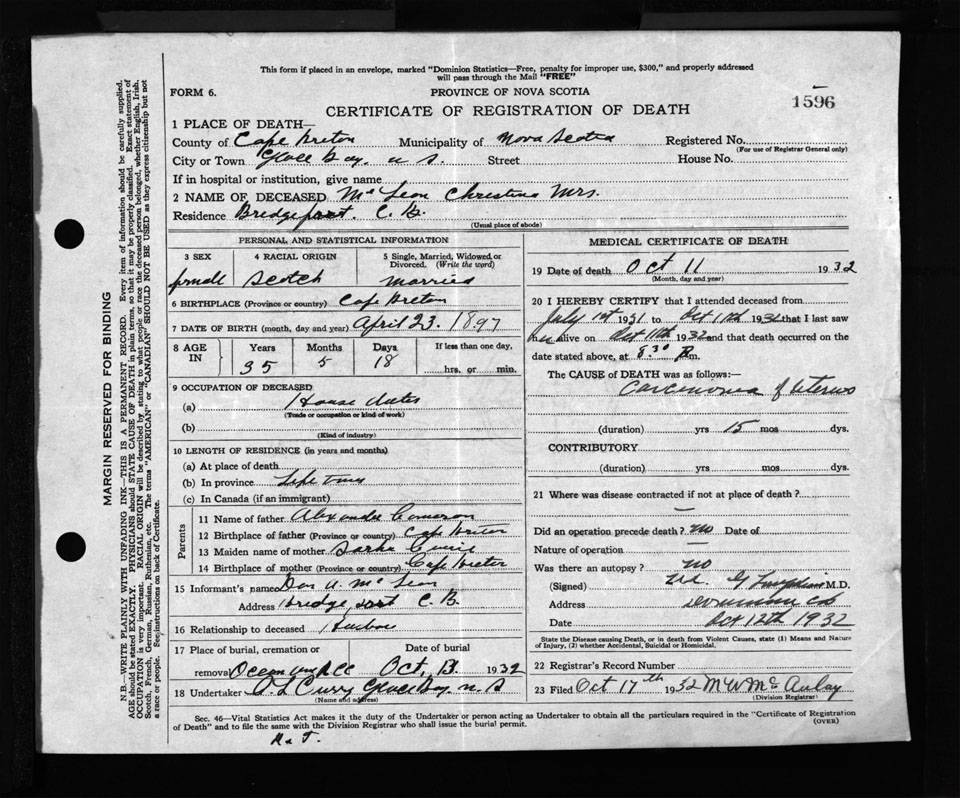 This form if placed in an envelope, marked "Dominion Statistics—Free, penalty for improper use, $300," and properly addressed
will pass through the Mail "FREE"
FORM 6.
PROVINCE OF NOVA SCOTIA
1596
CERTIFICATE OF REGISTRATION OF DEATH
1 PLACE OF DEATH—
County of Cape Breton Municipality of Nova Scotia Registered No.
(For use of Registrar General only)
City or Town Glace Bay. N S. Street House No.
If in hospital or institution, give name
2 NAME OF DECEASED Mc Lean Christina Mrs.
Residence Bridgeport. C. B.
(Usual place of abode)
PERSONAL AND STATISTICAL INFORMATION
3 SEX 4 RACIAL ORIGIN 5 Single, Married, Widowed or
Divorced. (Write the word)
Scotch Married
6 BIRTHPLACE (Province or country) Cape Breton
7 DATE OF BIRTH (month, day and year) April 23. 1897
8 AGE IN Years Months Days If less than one day,
35 5 18 hrs. or min.
9 OCCUPATION OF DECEASED
(a) House
(Trade or occupation or kind of work)
(b)
(Kind of industry)
10 LENGTH OF RESIDENCE (in years and months)
(a) At place of death
(b) In province Life time
(c) In Canada (if an immigrant)
Parents
11 Name of father Cameron
12 Birthplace of father (Province or country) Cape Breton
13 Maiden name of mother
14 Birthplace of mother (Province or country) Cape Breton
15 Informant's name Dan A. Mc Lean
Address Bridgeport C. B.
16 Relationship to deceased
17 Place of burial, cremation or Date of burial
removal Oct, 13. 1932
18 Undertaker Curry Glace Bay N S
(Name and address)
MEDICAL CERTIFICATE OF DEATH
19 Date of death Oct 11 1932
(Month, day and year)
20 I HEREBY CERTIFY that I attended deceased from
July 1st 1931 to Oct 11th 1932 that I last saw
her alive on Oct 11th 1932 and that death occurred on
date stated above, at 8.30 P.m.
The CAUSE of DEATH was as follows:—
Carcinoma of Uterus
(duration) yrs 15 mos dys.
CONTRIBUTORY
(duration) yrs. mos. dys.
21 Where was disease contracted if not at place of death?
—
Did an operation precede death? No Date of
Nature of operation —
Was there an autopsy? No
(Signed) M.D.
Address
Date Oct 12th 1932
State the Disease causing Death, or in death from Violent Causes, state (1) Means and Nature
of Injury, (2) whether Accidental, Suicidal or Homicidal.
22 Registrar's Record Number
23 Filed Oct 17th 1932 M W McAulay
(Division Registrar)
Sec. 46—Vital Statistics Act makes it the duty of the Undertaker or person acting as Undertaker to obtain all the particulars required in the "Certificate of Registration
of Death" and to file the same with the Division Registrar who shall issue the burial permit.
(OVER)
MARGIN RESERVED FOR BINDING
N.B.—WRITE PLAINLY WITH UNFADING INK—THIS IS A PERMANENT RECORD. Every item of information should be carefully supplied.
AGE should be stated EXACTLY. PHYSICIANS should STATE CAUSE OF DEATH in plain terms, so that it may be properly classified. Exact statement of
OCCUPATION is very important. RACIAL ORIGIN will be described by stating to what people or race the deceased person belonged, whether English, Irish,
Scotch, French, German, Russian, Ruthenian, etc. The terms "AMERICAN" or "CANADIAN" SHOULD NOT BE USED as they express citizenship but not
a race or people. See instructions on back of Certificate.